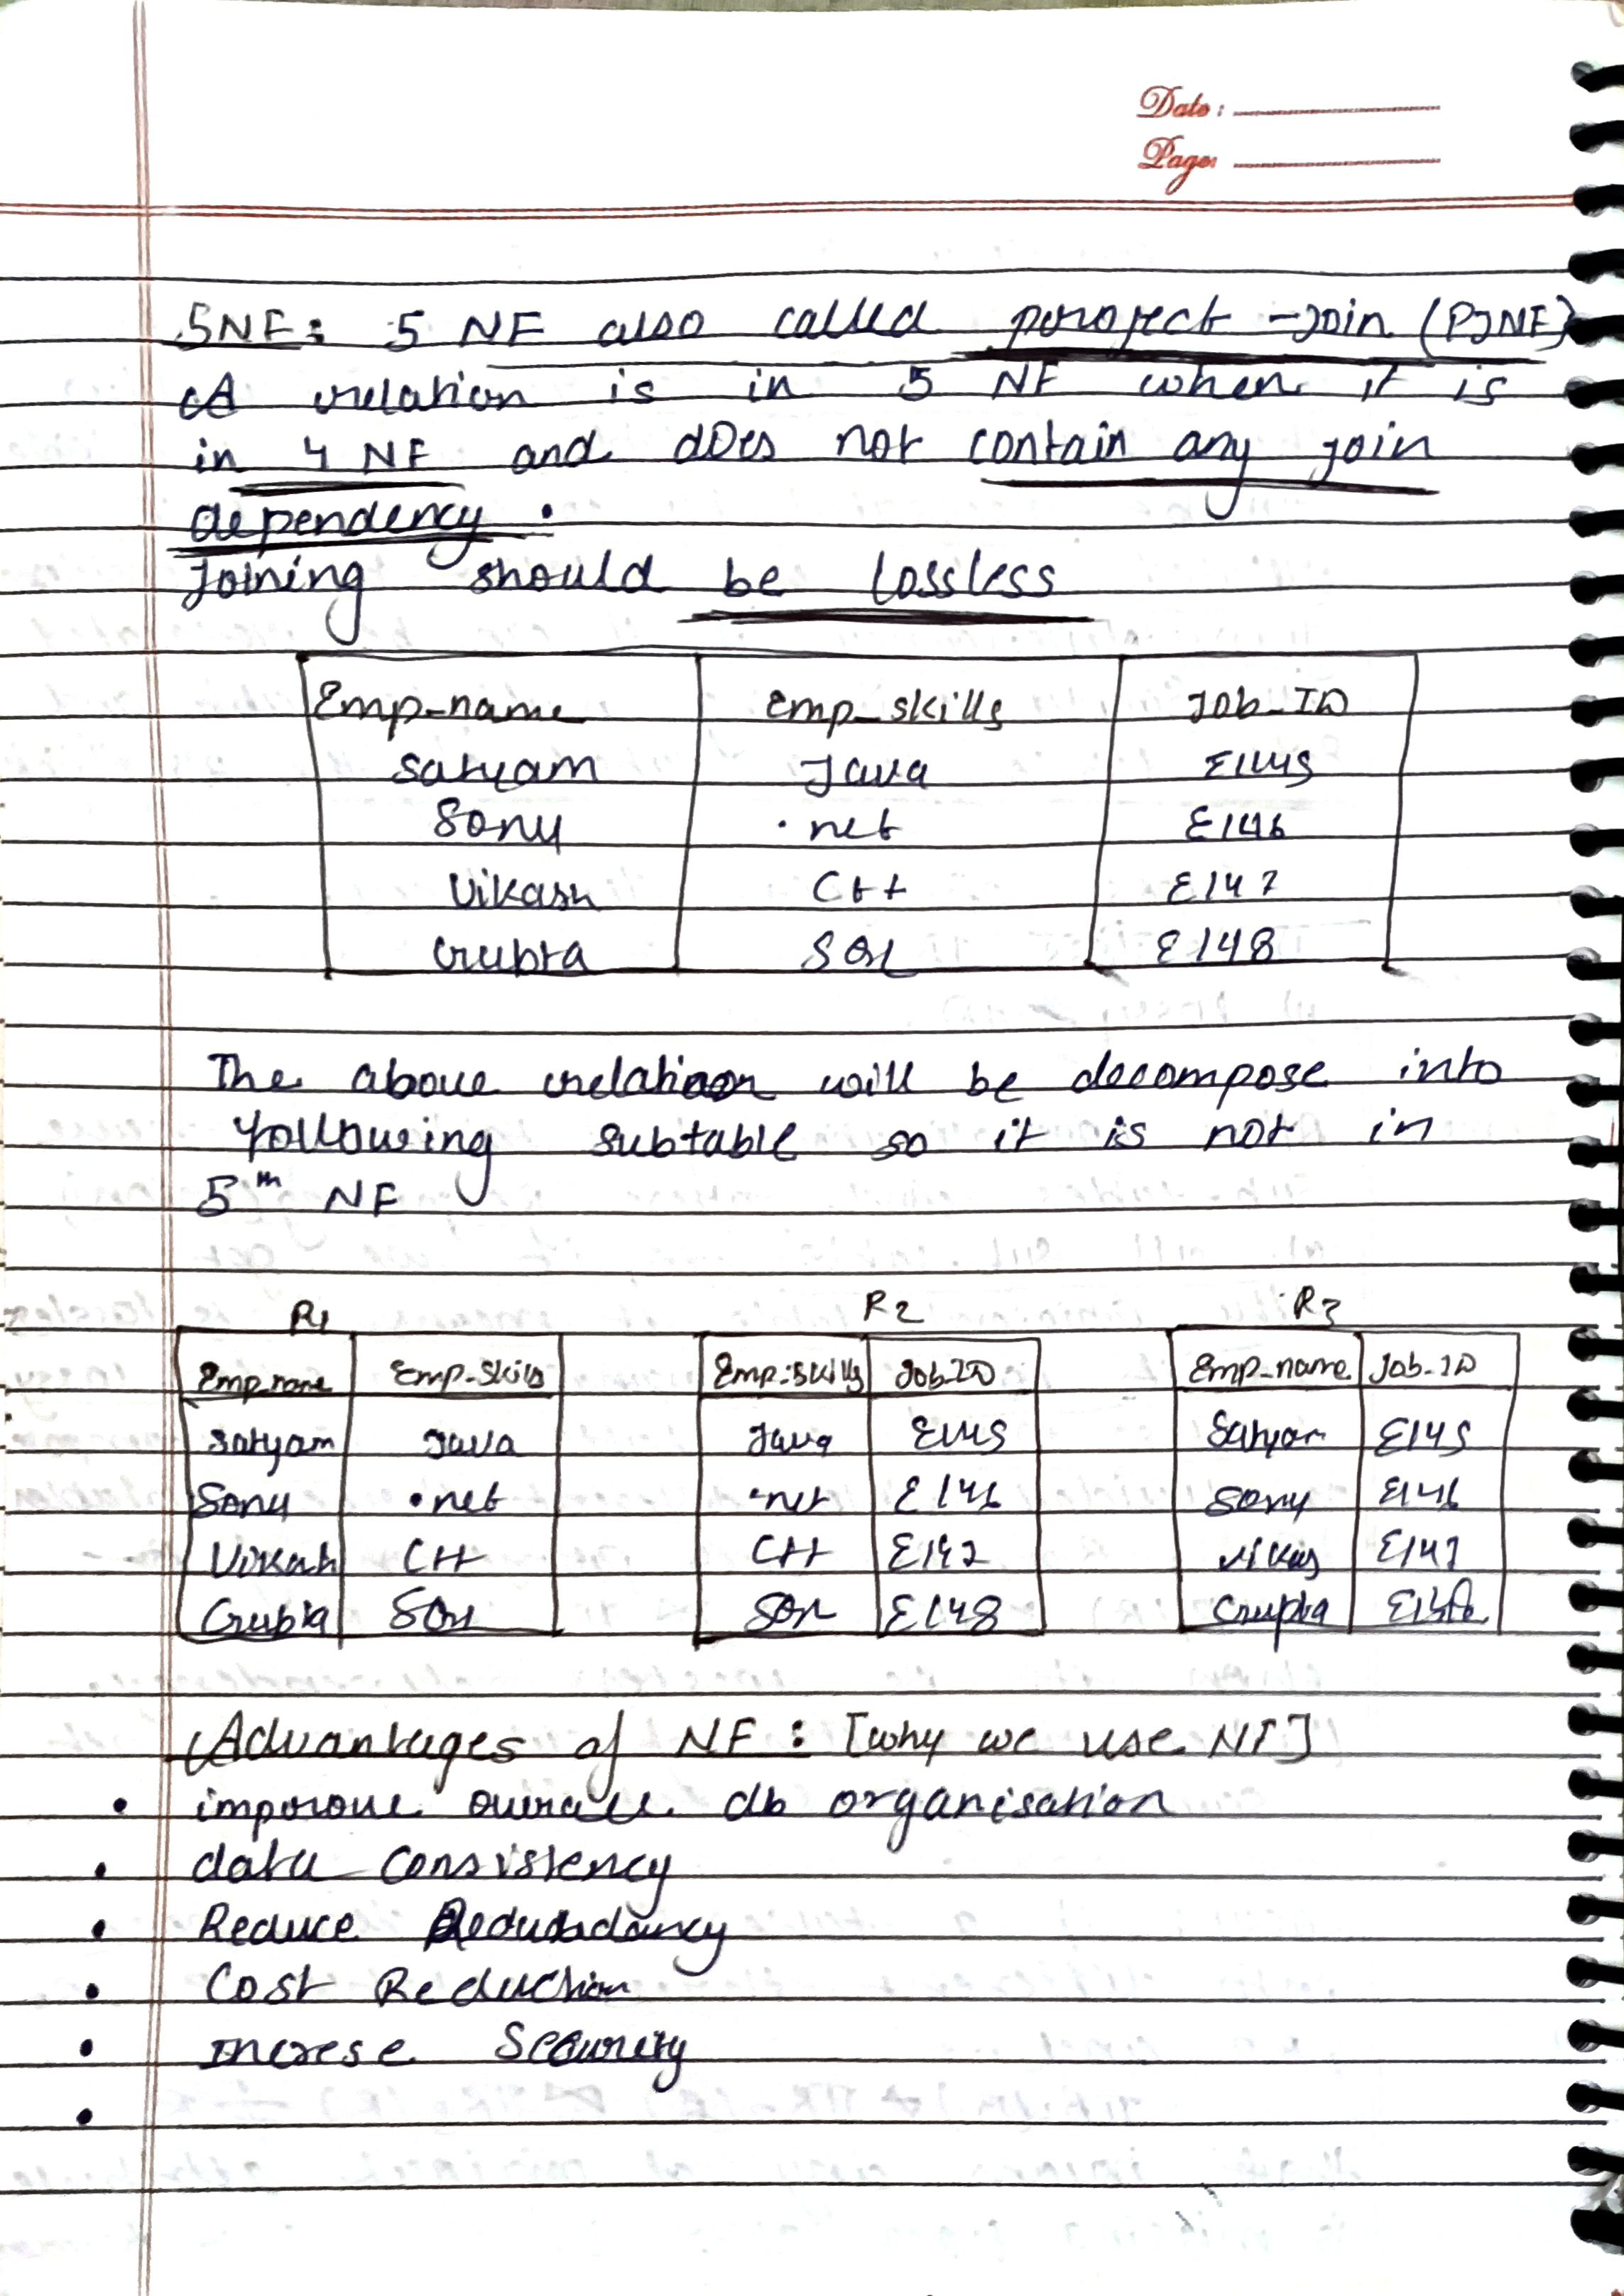 Date:
Page:
5NF: 5 NF also called project-join (PJNF)
A relation is in 5 NF when it is
in 4 NF and does not contain any join
dependency.
Joining should be lossless
Emp-name Emp_skills Job-ID
Satyam Java E145
Sonu .net E146
Vikash C++ E147
Gupta SQL E148
The above relation will be decompose into
following subtable so it is not in
5th NF
R1 R2 R3
Emp name Emp-skills Emp-skills Job-ID Emp-name Job-ID
Satyam Java Java E145 Satyam E145
Sonu .net .net E146 Sony E146
Vikash C++ C++ E147 Vikas E147
Gupta SQL SQL E148 Gupta
Advantages of NF: [why we use NF]
• improve overall db organisation
• data consistency
• Reduce Redundancy
• Cost Reduction
• Increse Security
•